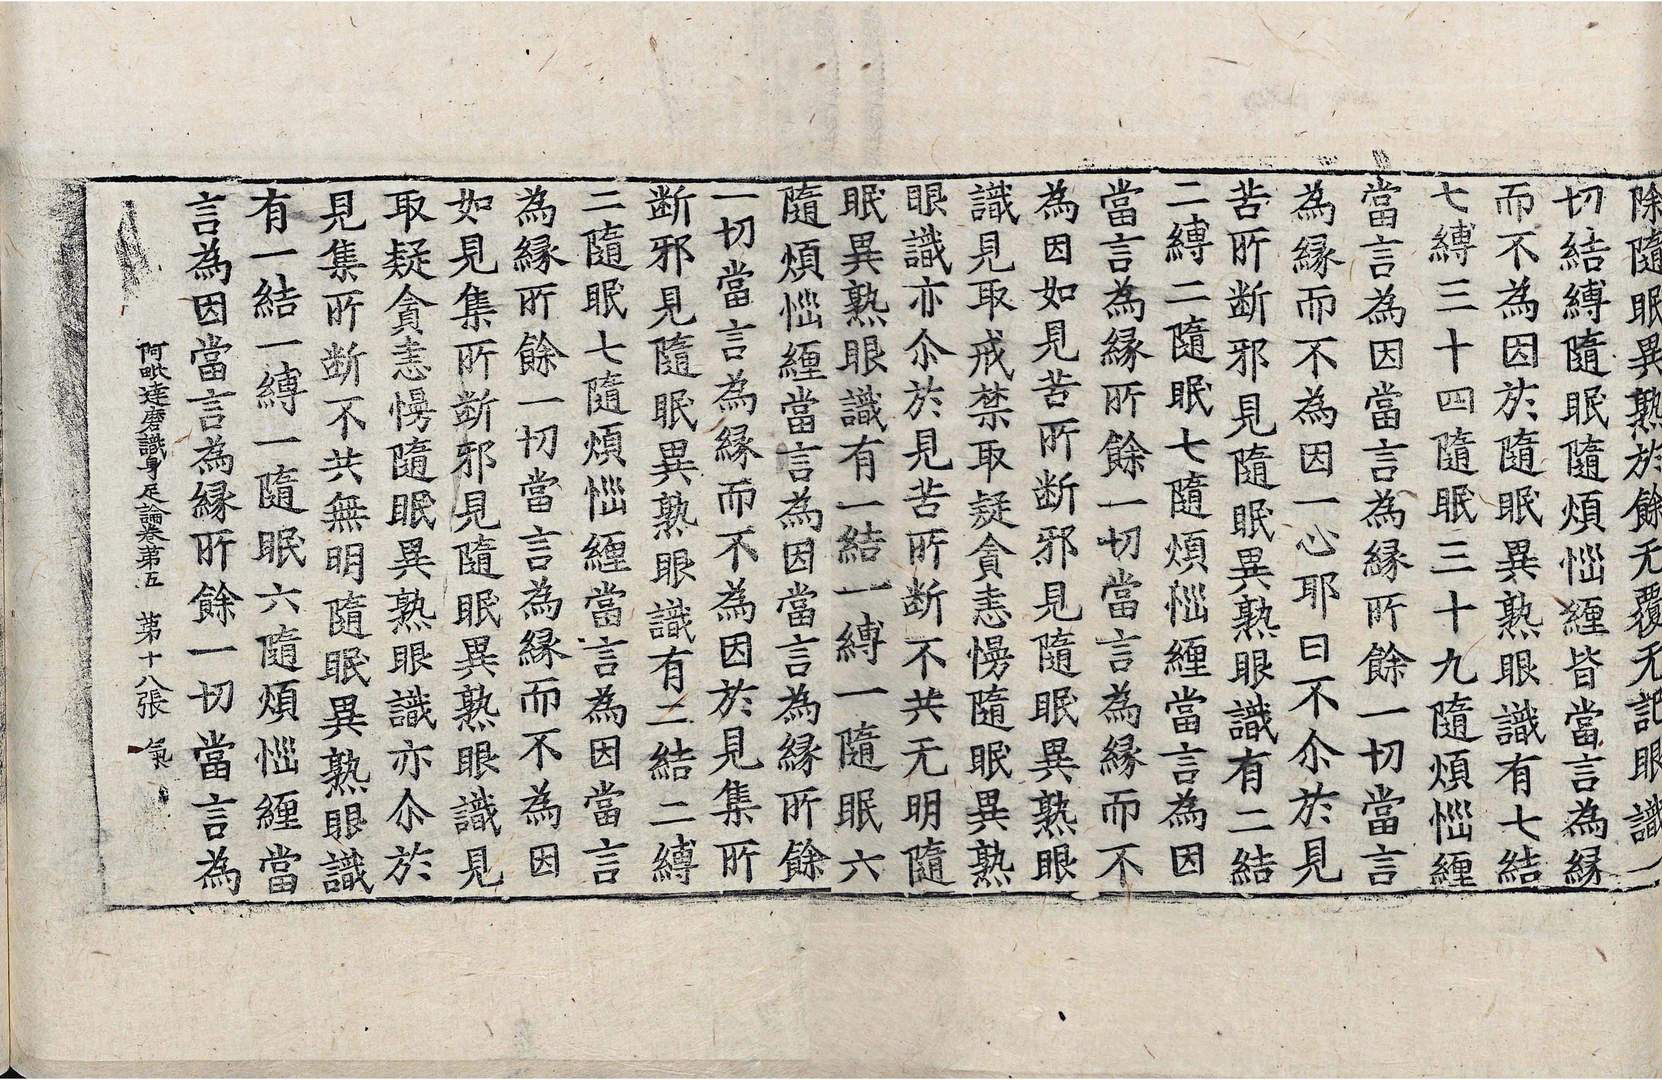 除隨眠異熟於餘无覆无記眼識一
切結縛隨眠隨煩惱纒皆當言為縁
而不為因於隨眠異熟眼識有七結
七縛三十四隨眠三十九隨煩惱纒
當言為因當言為縁所餘一切當言
為縁而不為因一心耶曰不尒於見
苦所断邪見隨眠異熟眼識有二結
二縛二隨眠七隨煩惱纒當言為因
當言為縁所餘一切當言為縁而不
為因如見苦所断邪見隨眠異熟眼
識見取戒禁取疑貪恚慢隨眠異熟
眼識亦尒於見苦所断不共无明隨
眠異熟眼識有一結一縛一隨眠六
隨煩惱纒當言為因當言為縁所餘
一切當言為縁而不為因於見集所
断邪見隨眠異熟眼識有二結二縛
二隨眠七隨煩惱纒當言為因當言
為縁所餘一切當言為縁而不為因
如見集所断邪見隨眠異熟眼識見
取疑貪恚慢隨眠異熟眼識亦尒於
見集所断不共無明隨眠異熟眼識
有一結一縛一隨眠六隨煩惱纒當
言為因當言為縁所餘一切當言為
阿毗達磨識身足論卷第五 第十八張 氣